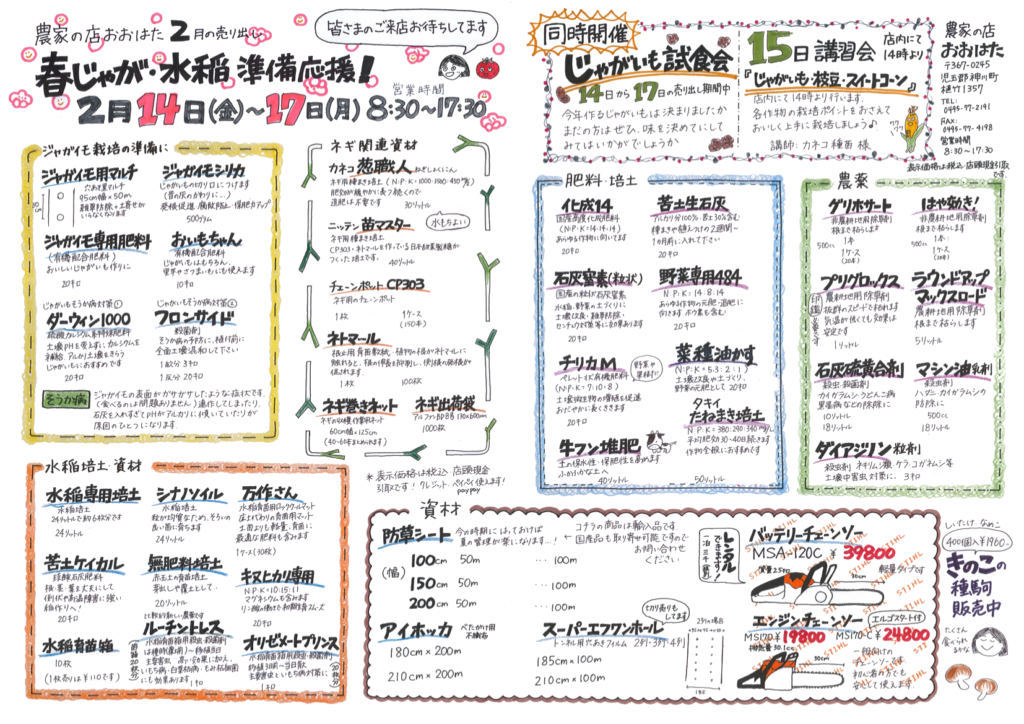 農家の店おおはた 2月の売り出し
春じゃが・水稲 準備応援！
2月14日(金)～17日(月) 8:30～17:30
営業時間
皆さまのご来店お待ちしてます
同時開催
じゃがいも試食会
14日から17日の売り出し期間中
今年作るじゃがいもは決まりましたか
まだの方はぜひ、味を決めてにして
みてはいかがでしょうか
15日講習会 店内にて14時より
『じゃがいも・枝豆・スイートコーン』
店内にて14時より行います。
名作物の栽培ポイントをおさえて
おいしく上手に栽培しましょう♪
講師：カネコ種苗 様
農家の店
おおはた
〒367-0245
児玉郡神川町
植竹1357
TEL:
0495-77-2191
FAX:
0495-77-4198
営業時間
8:30～17:30
表示価格は税込・店頭現金引取です
ジャガイモ栽培の準備に
ジャガイモ用マルチ
穴あき黒マルチ
95cm幅×50m
雑草防除・土寄せが
いらなくなります
ジャガイモシリカ
じゃがいもの切り口につけます
(昔の灰のかわりに…)
発根促進、腐敗防止、保肥力アップ
500グラム
ジャガイモ専用肥料
(有機配合肥料)
おいしいじゃがいも作りに
20キロ
おいもちゃん
有機配合肥料
じゃがいもはもちろん、
里芋やさつまいもにも使えます
10キロ
じゃがいもそうか病対策①
ダーウィン1000
20キロ
じゃがいもそうか病対策②
フロンサイド
殺菌剤
そうか病の予防に。植付前に
全面土壌混和して下さい
1粒分 3キロ
1粒分 20キロ
そうか病
ジャガイモの表面がガサガサしたような症状です
(食べるのは問題ありません) 連作してしまったり、
石灰を入れすぎてpHがアルカリに傾いていたりが
原因のひとつになります。
ネギ関連資材
カネコ 葱職人 ねぎしょくにん
ネギ用種まき培土
肥効が緩やかに長つ続くので
追肥は不要です 30リットル
ニッテン 苗マスター 水もちよい
ネギ用種まき培土
CP303・ネトマールを作っている日本甜菜製糖が
つくった培土です。 40リットル
チェーンポットCP303
ネギ用のチェーンポット
1枚 1ケース(150本)
ネトマール
1枚 100枚
ネギ巻きネット
ネギの収穫作業用ネット
60cm幅×125m
(40-60本まとめられます)
ネギ出荷袋
1000枚
＊表示価格は税込・店頭現金
引取です！クレジット・ペイペイ使えます！
paypay
肥料・培土
化成14
国産高度化成肥料
(N・P・K=14・14・14)
あらゆる作物に向いてます
20キロ
苦土生石灰
アルカリ分100％・苦土30％含む
種まきや植えつけの2週間～
1か月前に入れて下さい
20キロ
石灰窒素(粒状)
国産の粒状石灰窒素
水稲、野菜の土づくりに
土壌改良・雑草防除・
センチュウ対策等に効果あります
20キロ
野菜専用484
N・P・K=14・8・14
あらゆる作物の元肥・追肥に
向きます ホウ素も含む
20キロ
チリカM 野菜や果樹に！
ペレット状有機肥料
(N・P・K=7・10・8)
土壌改良や
土壌微生物の増殖を促進
おだやかに長くききます
20キロ
菜種油かす
N・P・K=5.3:2:1
土壌改良や土づくり、
野菜の元肥として 20キロ
タキイ
たねまき培土
N・P・K=380:290:340
平均肥効30-40日続きます
作物全般におすすめです
50リットル
牛フン堆肥
土の保水性・保肥性を高めます
ふかふかな土へ
40リットル
農薬
グリホサート
非農耕地用除草剤
根まで枯らします
500cc 1本
1ケース(20本)
はや効き！
非農耕地用除草剤
根まで枯らします
1本
1ケース(10本)
プリグロックス
農耕地用除草剤
抜群のスピードで枯れます
気温が低くても効果は
安定です
1リットル
印鑑必要です
ラウンドアップ
マックスロード
農耕地用除草剤
根まで枯らします
5リットル
石灰硫黄合剤
殺虫・殺菌剤
カイガラムシ・うどんこ病
黒星病などの除除に
10リットル
18リットル
マシン油乳剤
殺虫剤
ハダニ・カイガラムシの
防除に
500cc
18リットル
ダイアジノン粒剤
殺虫剤 ネキリムシ類・ケラ・コガネムシ等
土壌中害虫対策に。 3キロ
水稲培土・資材
水稲専用培土
水稲培土
24リットルで約6枚分です
24リットル
シナノソイル
水稲培土
粒が均質なため、そろいの
良い苗に育ちます
24リットル
万作さん
水稲育苗用ロックウールマット
床土がわりの育苗用マット
土苗よりも軽量、育苗に
最適な肥料も含みます
1ケース(30枚)
苦土ケイカル
珪酸石灰肥料
根・茎・葉を丈夫にして
倒伏や高温障害に強い
稲作りへ！
20キロ
無肥料培土
赤玉土の育苗培土
芽出しや覆土として。
20リットル
キヌヒカリ専用
N・P・K=10:15:11
マグネシウムも含みます
リン酸の働きで初期生育スムーズ
20キロ
水稲育苗箱
10枚
(1枚売りは￥110です)
比較的新しい農薬です
ルーチントレス
水稲育苗箱用殺虫・殺菌剤
1キロ
オリゼメートプリンス
水稲育苗箱用殺虫・殺菌剤
1キロ
資材
防草シート
今の時期にはっておけば
夏の管理が楽になります…！
コチラの商品は輸入品です
国産品も取り寄せ可能ですので
お問い合わせ
ください
(幅) 100cm 50m …100m
150cm 50m …100m
200cm 50m …100m
アイホッカ べたがけ用不織布
180cm×200m
210cm×200m
切り売りもしてます
スーパーエフワンホール
トンネル用穴あきフィルム 2列・3列・4列
185cm×100m
210cm×100m
2列の場合
185
レンタルできます！
バッテリーチェーンソー
MSA-120C ￥39800
軽量タイプです
30cm
STIHL
エンジンチェーンソー エルゴスタート付
MS170 ￥19800 MS170C ￥24800
排気量30.1cc
30cm
一般向けの
チェーンソーです。
初心者の方でも
安心して使えます。
しいたけ・なめこ
400個入￥1960～
きのこの
種駒
販売中
たくさん
食べられ
るかな